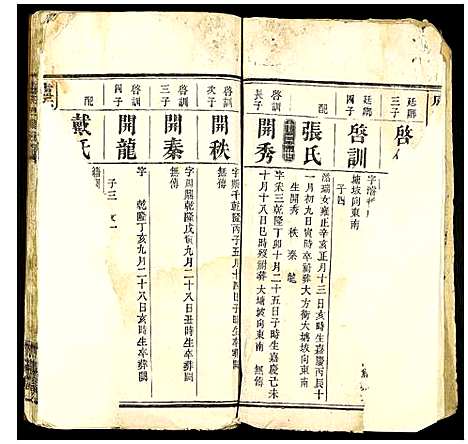 廷鄉
三子
啓
廷鄉
四子
啓訓
子四
塘坡向東南
配
張氏
瑞女雍正辛亥正月十三日亥時生嘉慶丙辰十
一月初九日寅時卒祔葬大方衝大塘坡向東南
生開秀 秩 秦 龍
啓訓
長子
開秀
字采三乾隆丁卯十月二十五日子時生嘉慶己未
十月十八日巳時歿祔葬大塘坡向東南 無傳
啓訓
次子
開秩
千乾隆丙子五月二十四日亥時生卒葬闕
無傳
啓訓
三子
開秦
字 乾隆戊寅九月二十八日丑時生卒葬闕
無傳
啓訓
四子
開龍
字 乾隆丁亥九月二十八日亥時生卒葬闕
子三 女一
配
戴氏